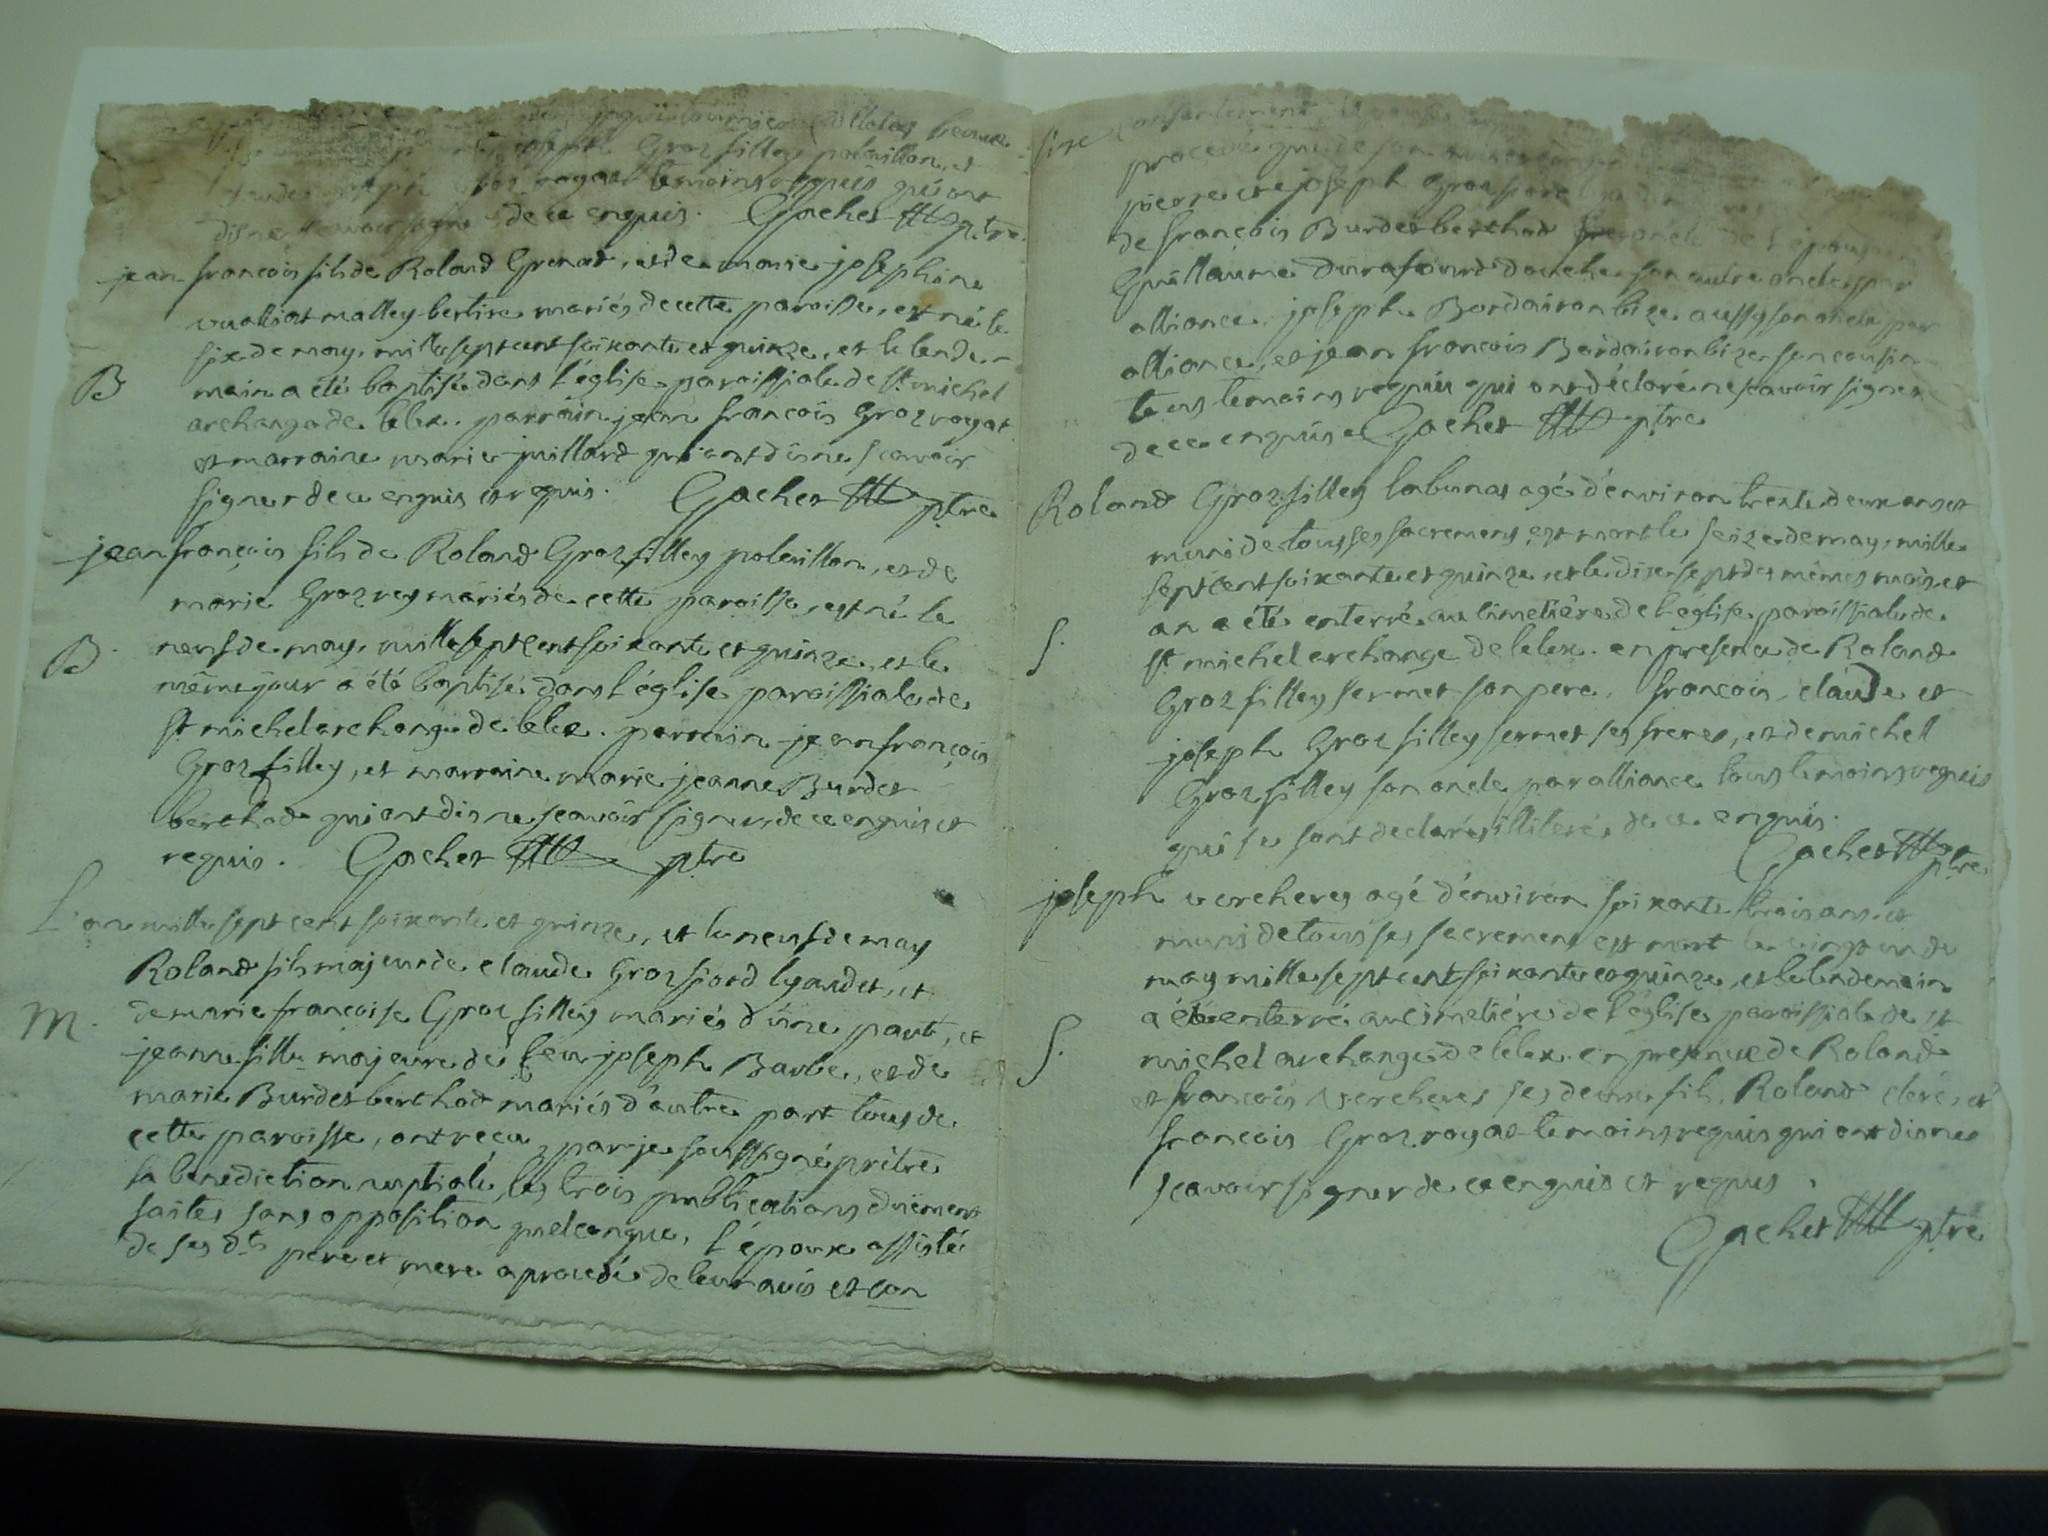 joseph Groz filley polaillon, et
témoins requis qui ont
de ce enquis. Gachet ptre
jean francois fils de Roland Grenard, et de marie josephine
vualliat malley bertire mariés de cette paroisse, est né le
six de may, mille sept cent soixante et quinze, et le lende-
B main a été baptisé dans l'église paroissiale de st. michel
archange de lelex. parrain jean francois Groz royat
et marraine marie juillard qui ont dis ne scavoir
signer de ce enquis et requis. Gachet ptre
jean françois fils de Roland Groz filley polaillon, et de
marie Groz rey mariés de cette paroisse, est né le
B. neuf de may, mille sept cent soixante et quinze, et le
même jour a été baptisé dans l'église paroissiale de
st michel archange de lelex. parrain jean françois
Groz filley, et marraine marie jeanne Burdet
berthod qui ont dis ne scavoir signer, de ce enquis et
requis. Gachet ptre
L'an mille sept cent soixante et quinze, et le neuf de may
Roland fils majeur de claude Groz fiord lyaudet, et
M. de marie francoise Groz filley mariés d'une part, et
jeanne fille majeure de feu joseph Barbe, et de
marie Burdet berthod mariés d'autre part tous de
cette paroisse, ont recu par je soussigné prêtre
la benediction nuptiale, les trois publications duement
faites sans opposition quelconque, l'époux assisté
de ses dts pere et mere a procedé de leur avis et con
consentement
procede
pierre et joseph Groz
de françois Burdet berthod de l'épouse
Guillaume durafourd douche son autre oncle par
alliance, joseph Bordairon bize aussy son oncle par
alliance, et jean francois Bordairon bize son cousin
tous temoins requis qui ont déclaré ne scavoir signer
de ce enquis Gachet ptre
Roland Groz filley labunas agé d'environ trente deux ans et
muni de tous ses sacremens est mort le seize de may, mille
sept cent soixante et quinze, et le dix sept des mêmes mois et
an a été enterré au cimetière de l'église paroissiale de
S. st michel archange de lelex. en presence de Roland
Groz filley fermet son pere, francois, claude et
joseph Groz filley fermet ses freres, et de michel
Groz filley son oncle par alliance tous temoins requis
qui se sont declarés illiterés de ce enquis.
Gachet ptre
joseph vercheres agé d'environ soixante trois ans et
muni de tous ses sacremens est mort le vingt un de
may mille sept cent soixante et quinze, et le lendemain
a été enterré au cimetière de l'église paroissiale de st
S. michel archange de lelex. en presence de Roland
et francois vercheres ses deux fils, Roland clerc, et
francois Groz royat temoins requis qui ont dis ne
scavoir signer de ce enquis et requis.
Gachet ptre